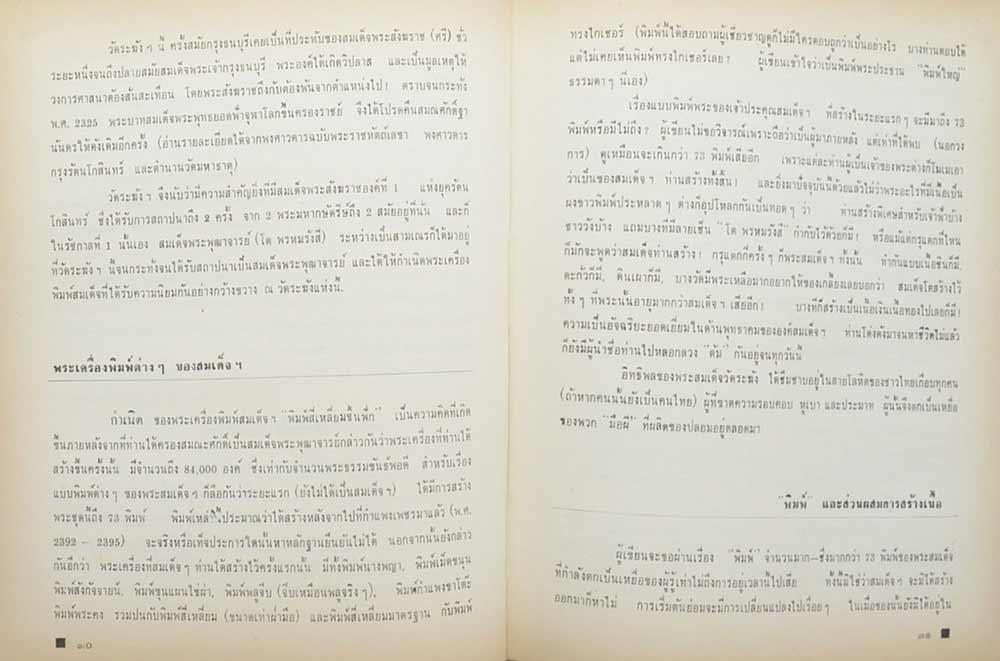 วัดระฆังฯ นี้ ครั้งสมัยกรุงธนบุรีเคยเป็นที่ประทับของสมเด็จพระสังฆราช (ศรี) ชั่ว
ระยะหนึ่งจนถึงปลายสมัยสมเด็จพระเจ้ากรุงธนบุรี พระองค์ได้เกิดวิปลาส และเป็นมูลเหตุให้
วงการศาสนาต้องสั่นสะเทือน โดยพระสังฆราชถึงกับต้องพ้นจากตำแหน่งไป! ตราบจนกระทั่ง
พ.ศ. 2325 พระบาทสมเด็จพระพุทธยอดฟ้าจุฬาโลกขึ้นครองราชย์ จึงได้โปรดคืนสมณศักดิ์ฐา
นันดรให้ดังเดิมอีกครั้ง (อ่านรายละเอียดได้จากพงศาวดารฉบับพระราชหัตถ์เลขา พงศาวดาร
กรุงรัตนโกสินทร์ และตำนานวัดมหาธาตุ)
วัดระฆังฯ จึงนับว่ามีความสำคัญยิ่งที่มีสมเด็จพระสังฆราชองค์ที่ 1 แห่งยุครัตน
โกสินทร์ ซึ่งได้รับการสถาปนาถึง 2 ครั้ง จาก 2 พระมหากษัตริย์ถึง 2 สมัยอยู่ที่นั่น และก็
ในรัชกาลที่ 1 นั้นเอง สมเด็จพระพุฒาจารย์ (โต พรหมรังสี) ระหว่างเป็นสามเณรก็ได้มาอยู่
ที่วัดระฆังฯ นี้จนกระทั่งจนได้รับสถาปนาเป็นสมเด็จพระพุฒาจารย์ และได้ให้กำเนิดพระเครื่อง
พิมพ์สมเด็จที่ได้รับความนิยมกันอย่างกว้างขวาง ณ วัดระฆังแห่งนี้.
พระเครื่องพิมพ์ต่าง ๆ ของสมเด็จฯ
กำเนิด ของพระเครื่องพิมพ์สมเด็จฯ "พิมพ์สี่เหลี่ยมชิ้นฟัก" เป็นความคิดที่เกิด
ขึ้นภายหลังจากที่ท่านได้ครองสมณะศักดิ์เป็นสมเด็จพระพุฒาจารย์กล่าวกันว่าพระเครื่องที่ท่านได้
สร้างขึ้นครั้งนั้น มีจำนวนถึง 84,000 องค์ ซึ่งเท่ากับจำนวนพระธรรมขันธ์พอดี สำหรับเรื่อง
แบบพิมพ์ต่าง ๆ ของพระสมเด็จฯ ก็ลือกันว่าระยะแรก (ยังไม่ได้เป็นสมเด็จฯ) ได้มีการสร้าง
พระชุดนี้ถึง 73 พิมพ์ พิมพ์เหล่านี้ประมาณว่าได้สร้างหลังจากไปที่กำแพงเพชรมาแล้ว (พ.ศ.
2392 – 2395) จะจริงหรือเท็จประการใดนั้นหาหลักฐานยืนยันไม่ได้ นอกจากนั้นยังกล่าว
กันอีกว่า พระเครื่องที่สมเด็จฯ ท่านได้สร้างไว้ครั้งแรกนั้น มีทั้งพิมพ์นางพญา, พิมพ์เม็ดขนุน
พิมพ์สังกัจจายน์, พิมพ์ขุนแผนไข่ผ่า, พิมพ์พลูจีบ (จีบเหมือนพลูจริง ๆ), พิมพ์กำแพงขาโต๊ะ
พิมพ์พระคง รวมปนกับพิมพ์สี่เหลี่ยม (ขนาดเท่าฝ่ามือ) และพิมพ์สี่เหลี่ยมมาตรฐาน กับพิมพ์
๑๐
ทรงไกเซอร์ (พิมพ์นี้ได้สอบถามผู้เชี่ยวชาญดูก็ไม่มีใครตอบถูกว่าเป็นอย่างไร บางท่านตอบได้
แต่ไม่เคยเห็นพิมพ์ทรงไกเซอร์เลย? ผู้เขียนเข้าใจว่าเป็นพิมพ์พระประธาน "พิมพ์ใหญ่"
ธรรมดา ๆ นี่เอง)
เรื่องแบบพิมพ์พระของเจ้าประคุณสมเด็จฯ ที่สร้างในระยะแรก ๆ จะมีมาถึง 73
พิมพ์หรือมีไม่ถึง? ผู้เขียนไม่ขอวิจารณ์เพราะถือว่าเป็นผู้มาภายหลัง แต่เท่าที่ได้พบ (นอกวง
การ) ดูเหมือนจะเกินกว่า 73 พิมพ์เสียอีก เพราะแต่ละท่านผู้เป็นเจ้าของพระต่างก็โมเมเอา
ว่าเป็นของสมเด็จฯ ท่านสร้างทั้งสิ้น! และยิ่งมาปัจจุบันนี้ด้วยแล้วไม่ว่าพระอะไรที่มีเนื้อเป็น
ผงขาวพิมพ์ประหลาด ๆ ต่างก็อุปโหลกกันเป็นทอด ๆ ว่า ท่านสร้างพิเศษสำหรับเจ้าฟ้าบ้าง
ชาววังบ้าง แถมบางทีมีลายเซ็น "โต พรหมรังสี" กำกับไว้ด้วยก็มี! หรือแม้แต่กรุแตกที่ไหน
ก็มักจะพูดว่าสมเด็จท่านสร้าง! กรุแตกกี่ครั้ง ๆ ก็พระสมเด็จฯ ทั้งนั้น ทำกันแบบเนื้อชินก็มี,
ตะกั่วก็มี, ดินเผาก็มี, บางวัดมีพระเหลือมากอยากให้ของเกลี้ยงเลยบอกว่า สมเด็จโตสร้างไว้
ทั้ง ๆ ที่พระนั้นอายุมากกว่าสมเด็จฯ เสียอีก! บางทีก็สร้างเป็นเนื้อเงินเนื้อทองไปเลยก็มี!
ความเป็นอัจฉริยะยอดเยี่ยมในด้านพุทธาคมขององค์สมเด็จฯ ท่านโด่งดังมาจนหาชีวิตไม่แล้ว
ก็ยังมีผู้นำชื่อท่านไปหลอกลวง "ต้ม" กันอยู่จนทุกวันนี้
อิทธิพลของพระสมเด็จวัดระฆัง ได้ซึมซาบอยู่ในสายโลหิตของชาวไทยเกือบทุกคน
(ถ้าหากคนนั้นยังเป็นคนไทย) ผู้ที่ขาดความรอบคอบ หูเบา และประมาท ผู้นั้นจึงตกเป็นเหยื่อ
ของพวก "มือผี" ที่ผลิตของปลอมอยู่ตลอดมา
"พิมพ์" และส่วนผสมการสร้างเนื้อ
ผู้เขียนจะขอผ่านเรื่อง "พิมพ์" จำนวนมาก—ซึ่งมากกว่า 73 พิมพ์ของพระสมเด็จ
ที่กำลังตกเป็นเหยื่อของผู้รู้เท่าไม่ถึงการอยู่เวลานี้ไปเสีย ทั้งนี้มิใช่ว่าสมเด็จฯ จะมิได้สร้าง
ออกมาก็หาไม่ การเริ่มต้นย่อมจะมีการเปลี่ยนแปลงไปเรื่อย ๆ ในเมื่อของนั้นยังมิได้อยู่ใน
๑๑